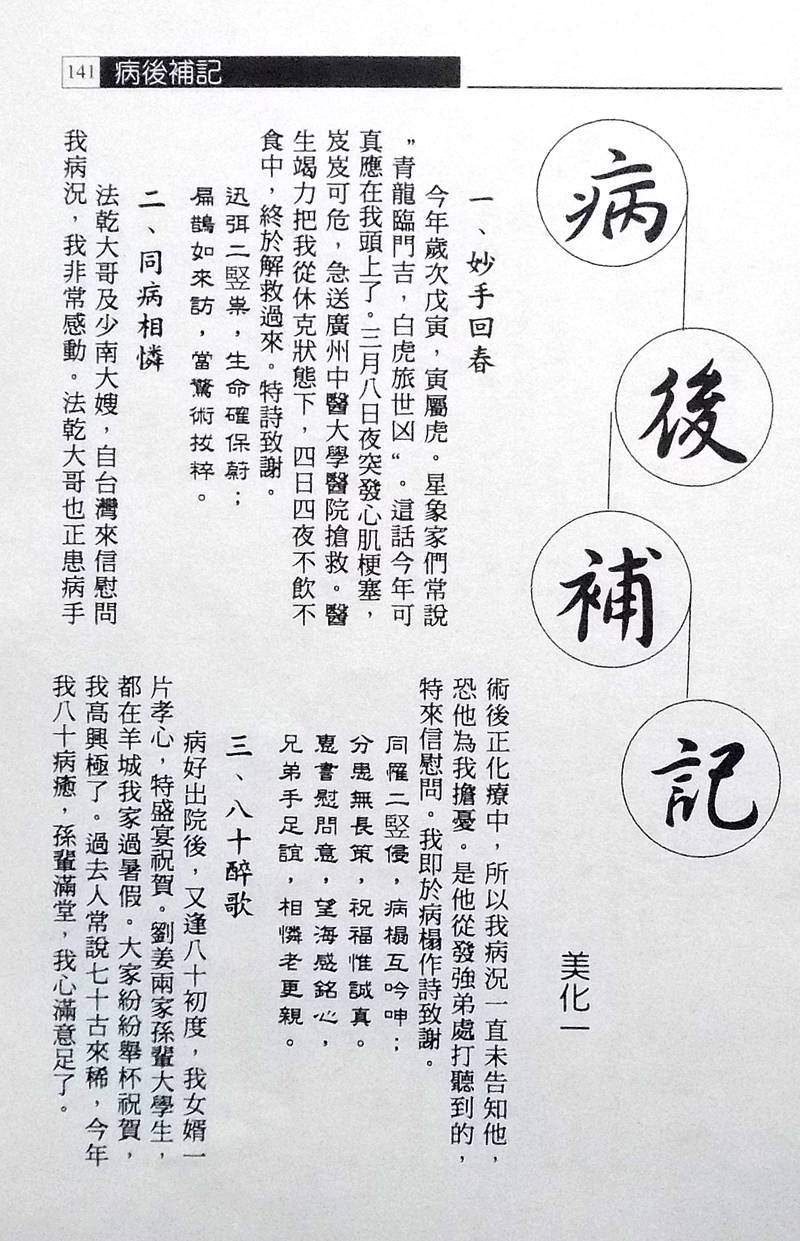 141 病後補記
病後補記
美化一
一、妙手回春
今年歲次戊寅，寅屬虎。星象家們常說
”青龍臨門吉，白虎旅世凶“。這話今年可
真應在我頭上了。三月八日夜突發心肌梗塞，
岌岌可危，急送廣州中醫大學醫院搶救。醫
生竭力把我從休克狀態下，四日四夜不飲不
食中，終於解救過來。特詩致謝。
迅弭二竪祟，生命確保蔚；
扁鵲如來訪，當驚術拔粹。
二、同病相憐
法乾大哥及少南大嫂，自台灣來信慰問
我病況，我非常感動。法乾大哥也正患病手
術後正化療中，所以我病況一直未告知他，
恐他為我擔憂。是他從發強弟處打聽到的，
特來信慰問。我即於病榻作詩致謝。
同罹二竪侵，病榻互吟呻；
分患無長策，祝福惟誠真。
惠書慰問意，望海感銘心，
兄弟手足誼，相憐老更親。
三、八十醉歌
病好出院後，又逢八十初度，我女婿一
片孝心，特盛宴祝賀。劉姜兩家孫輩大學生，
都在羊城我家過暑假。大家紛紛舉杯祝賀，
我高興極了。過去人常說七十古來稀，今年
我八十病癒，孫輩滿堂，我心滿意足了。